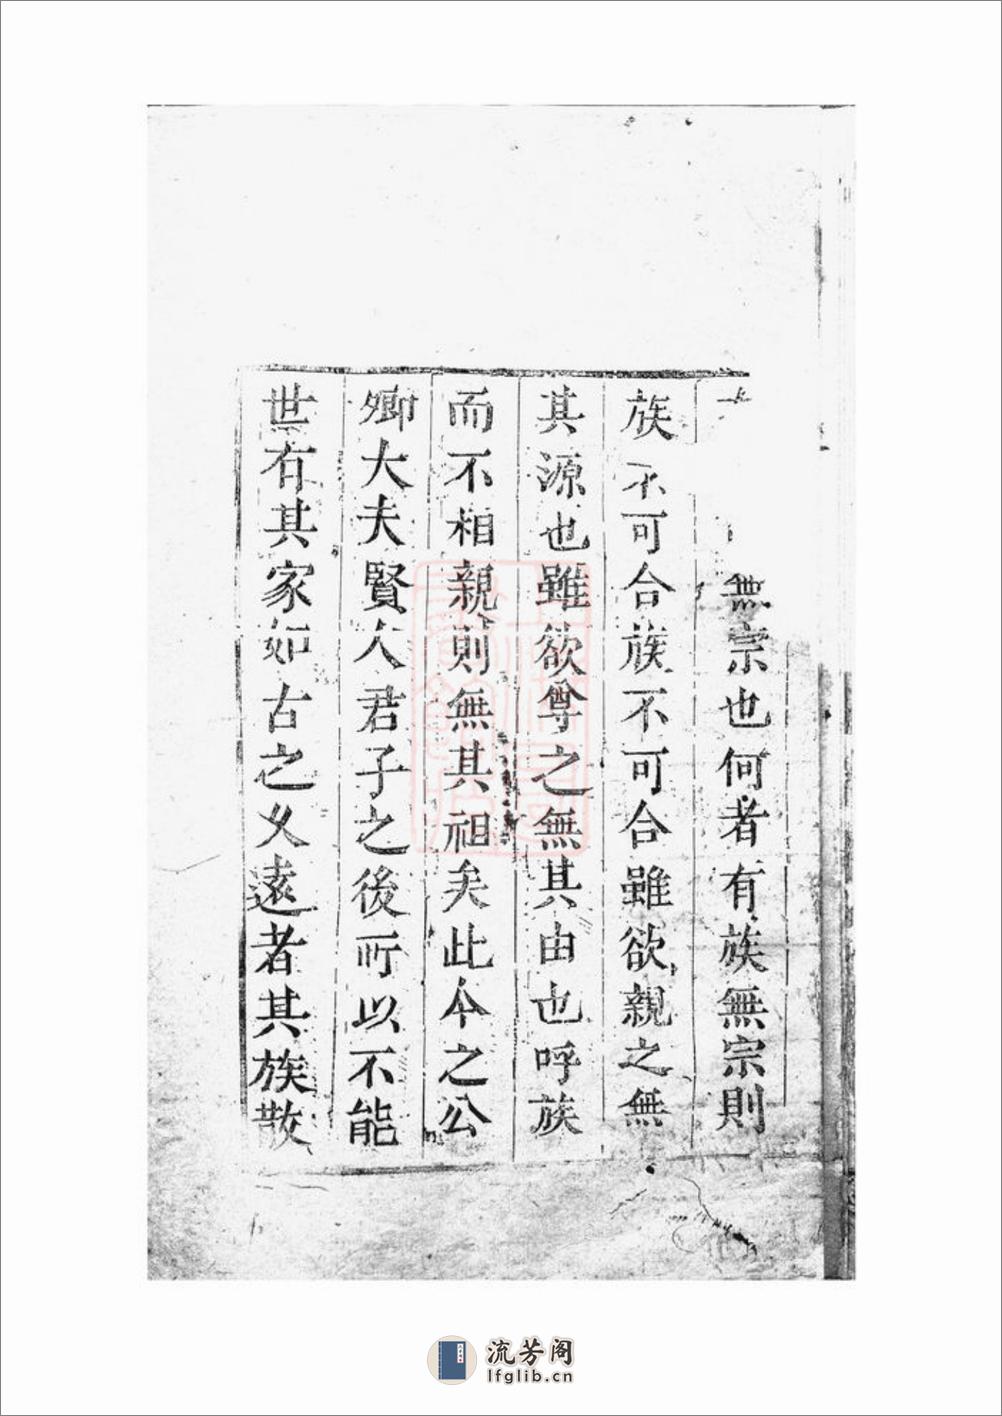 無宗也何者有族無宗則
族不可合族不可合雖欲親之無
其源也雖欲尊之無其由也呼族
而不相親則無其祖矣此本之公
卿大夫賢人君子之後所以不能
世有其家如古之久遠者其族散
流芳阁
lfglib.cn